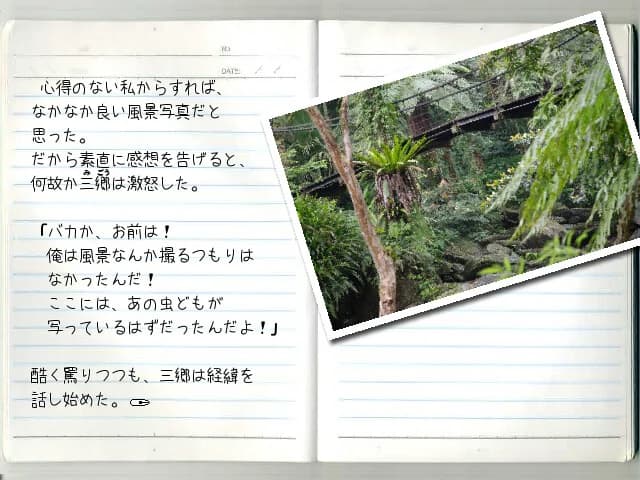 NO.
DATE: / /
心得のない私からすれば、
なかなか良い風景写真だと
思った。
だから素直に感想を告げると、
みごう
何故か三郷は激怒した。
「バカか、お前は！
俺は風景なんか撮るつもりは
なかったんだ！
ここには、あの虫どもが
写っているはずだったんだよ！」
酷く罵りつつも、三郷は経緯を
話し始めた。